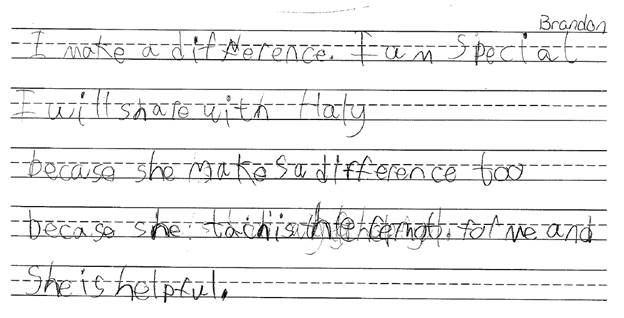 Brandon
I make a difference. I am Special
I will share with Haly
because she makes a difference too
becase she for me and
She is helpful.